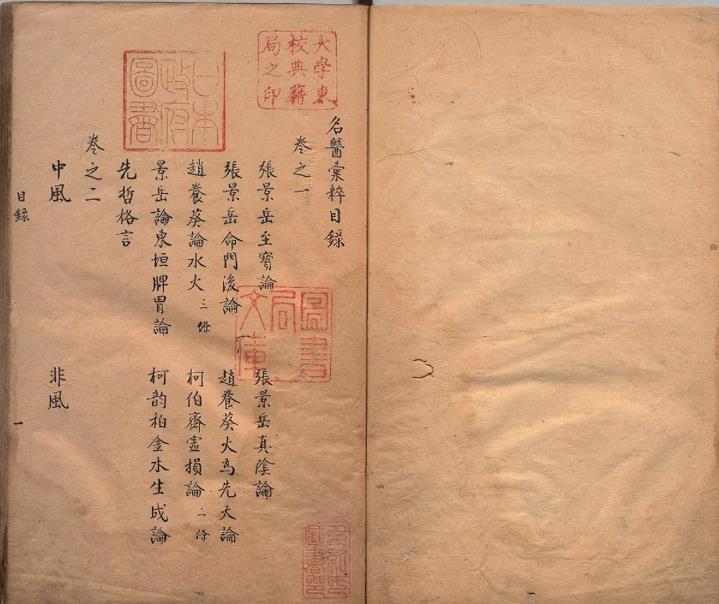 大學東
校典籍
局之印
日本
政府
圖書
名醫彙粹目録
卷之一
張景岳至寳論　張景岳真陰論
張景岳命門後論　趙養葵火為先天論
趙養葵論水火三條　柯伯齋虛損論二條
景岳論東垣脾胃論　柯韵柏金水生成論
先哲格言
卷之二
中風　非風
目録　一
圖書
局
文庫